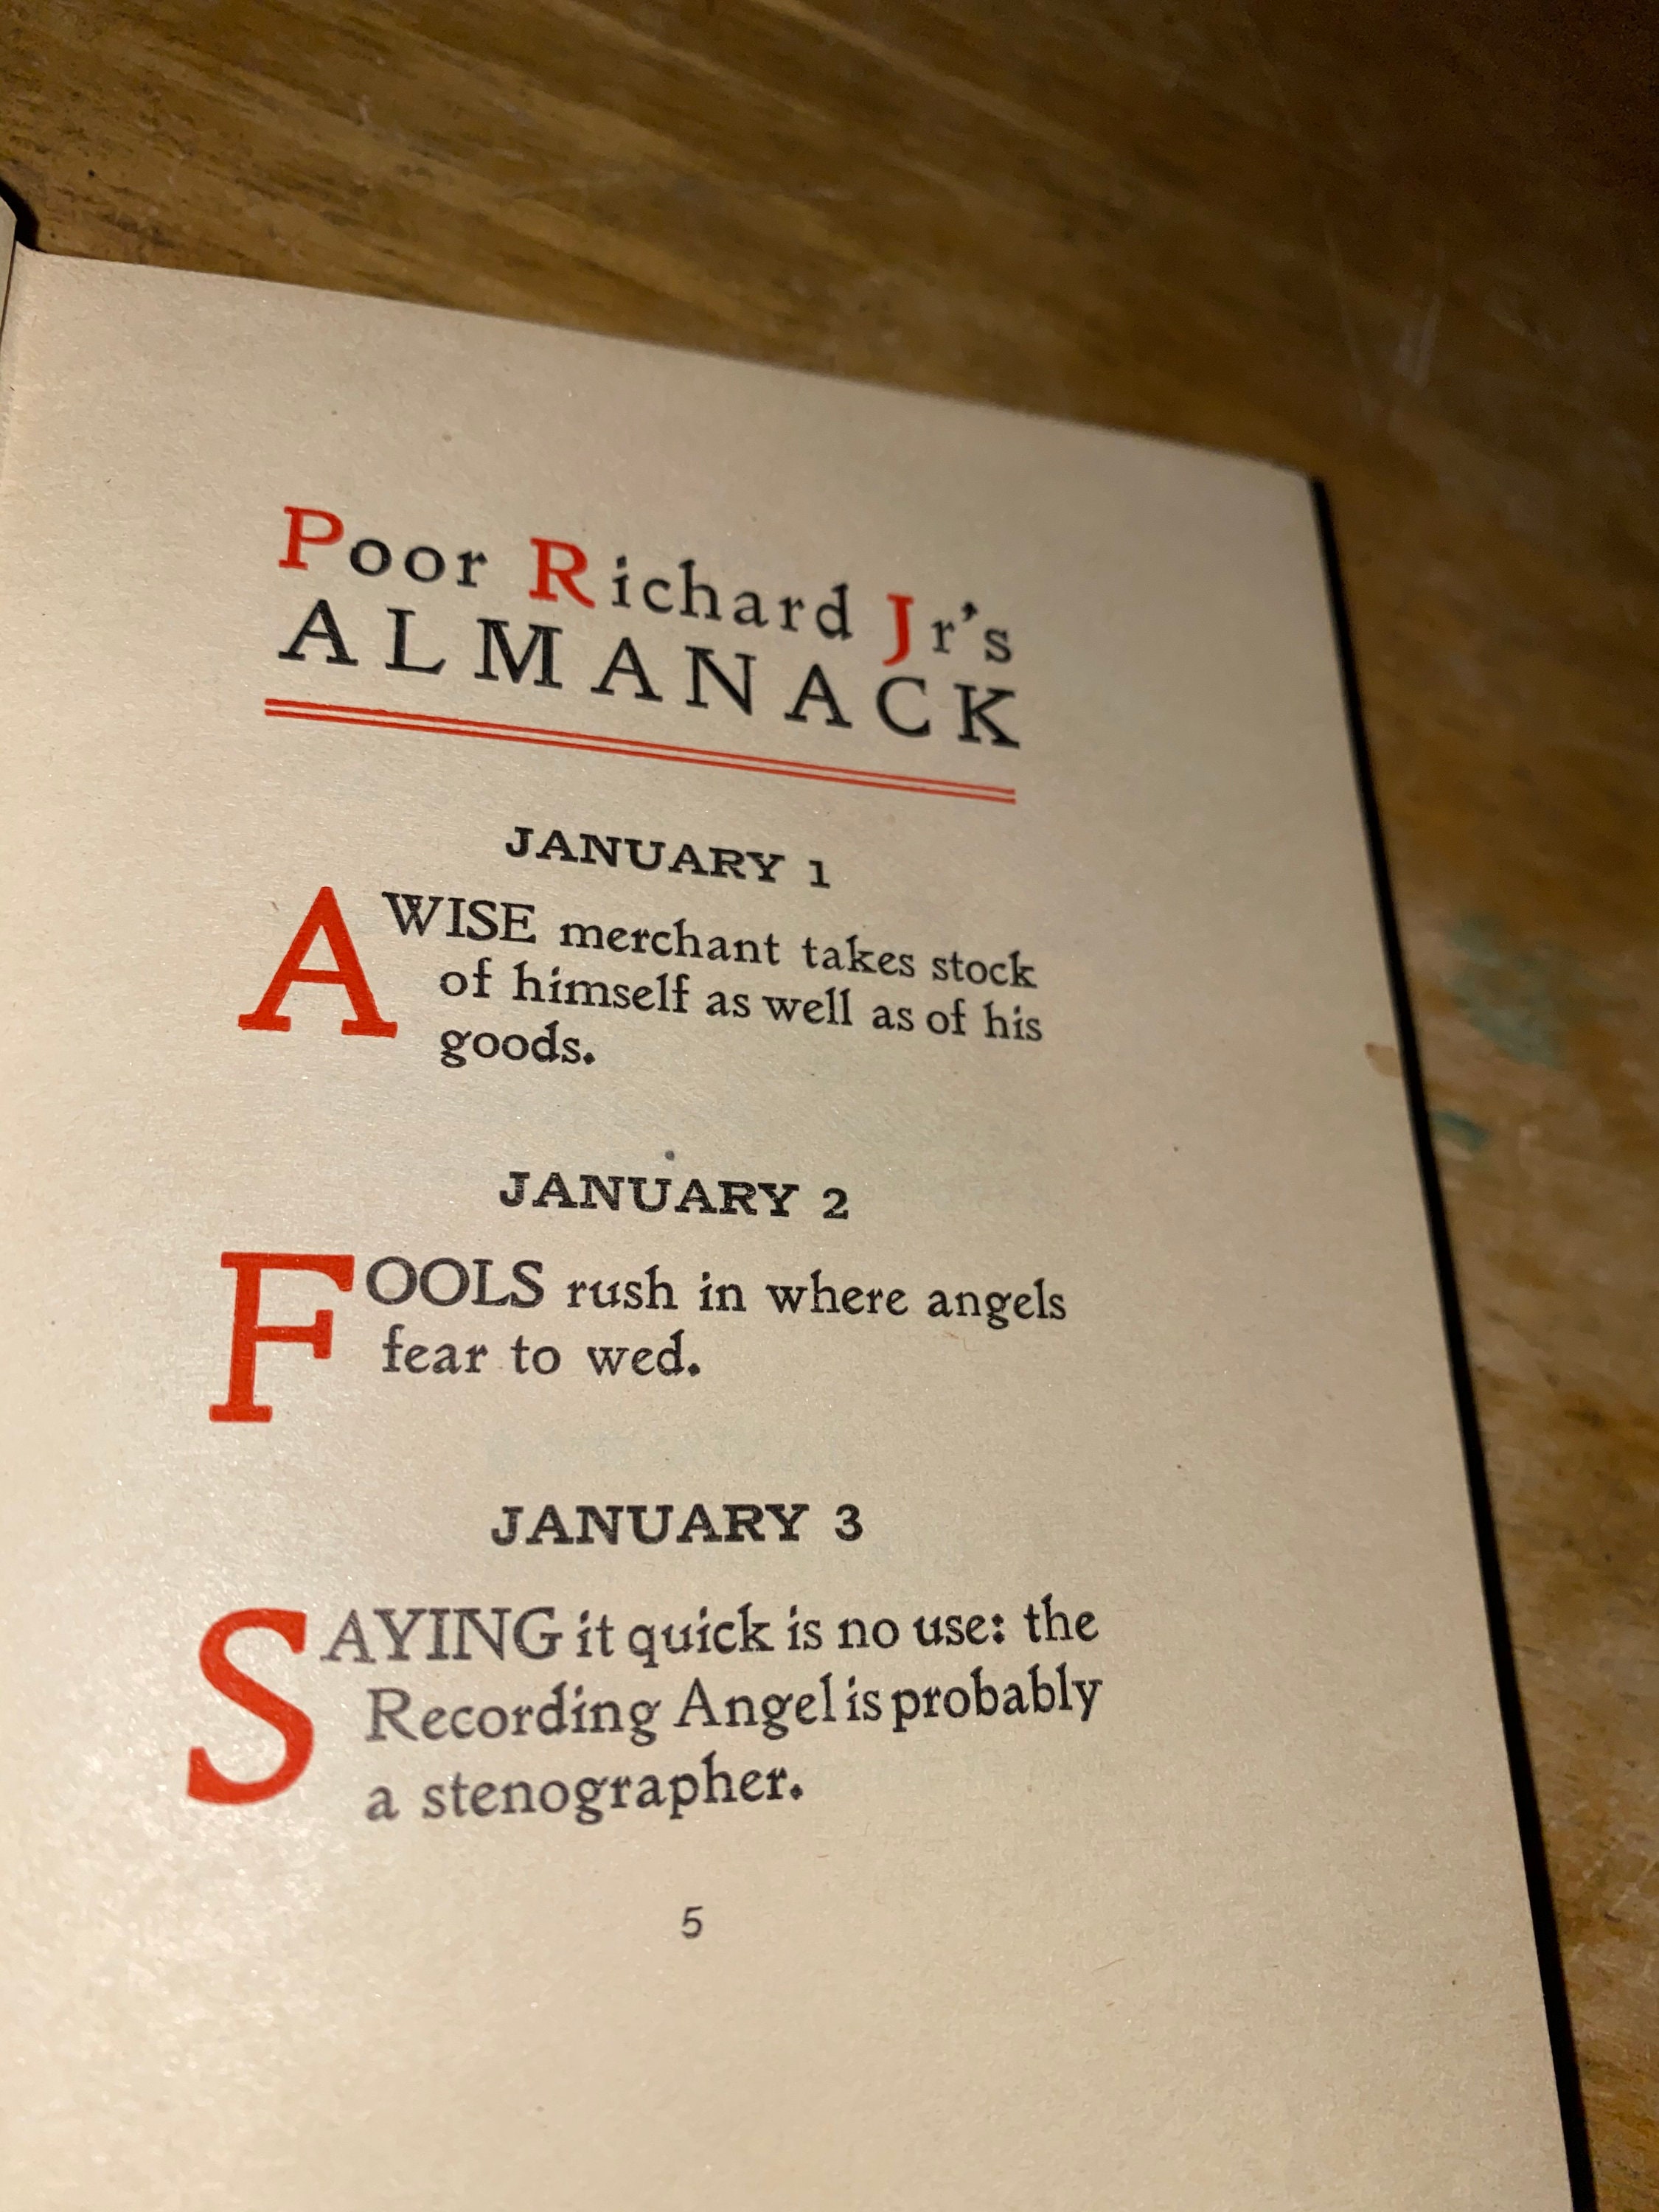 Poor Richard Jr's
ALMANACK
JANUARY 1
A WISE merchant takes stock
of himself as well as of his
goods.
JANUARY 2
FOOLS rush in where angels
fear to wed.
JANUARY 3
SAYING it quick is no use: the
Recording Angel is probably
a stenographer.
5